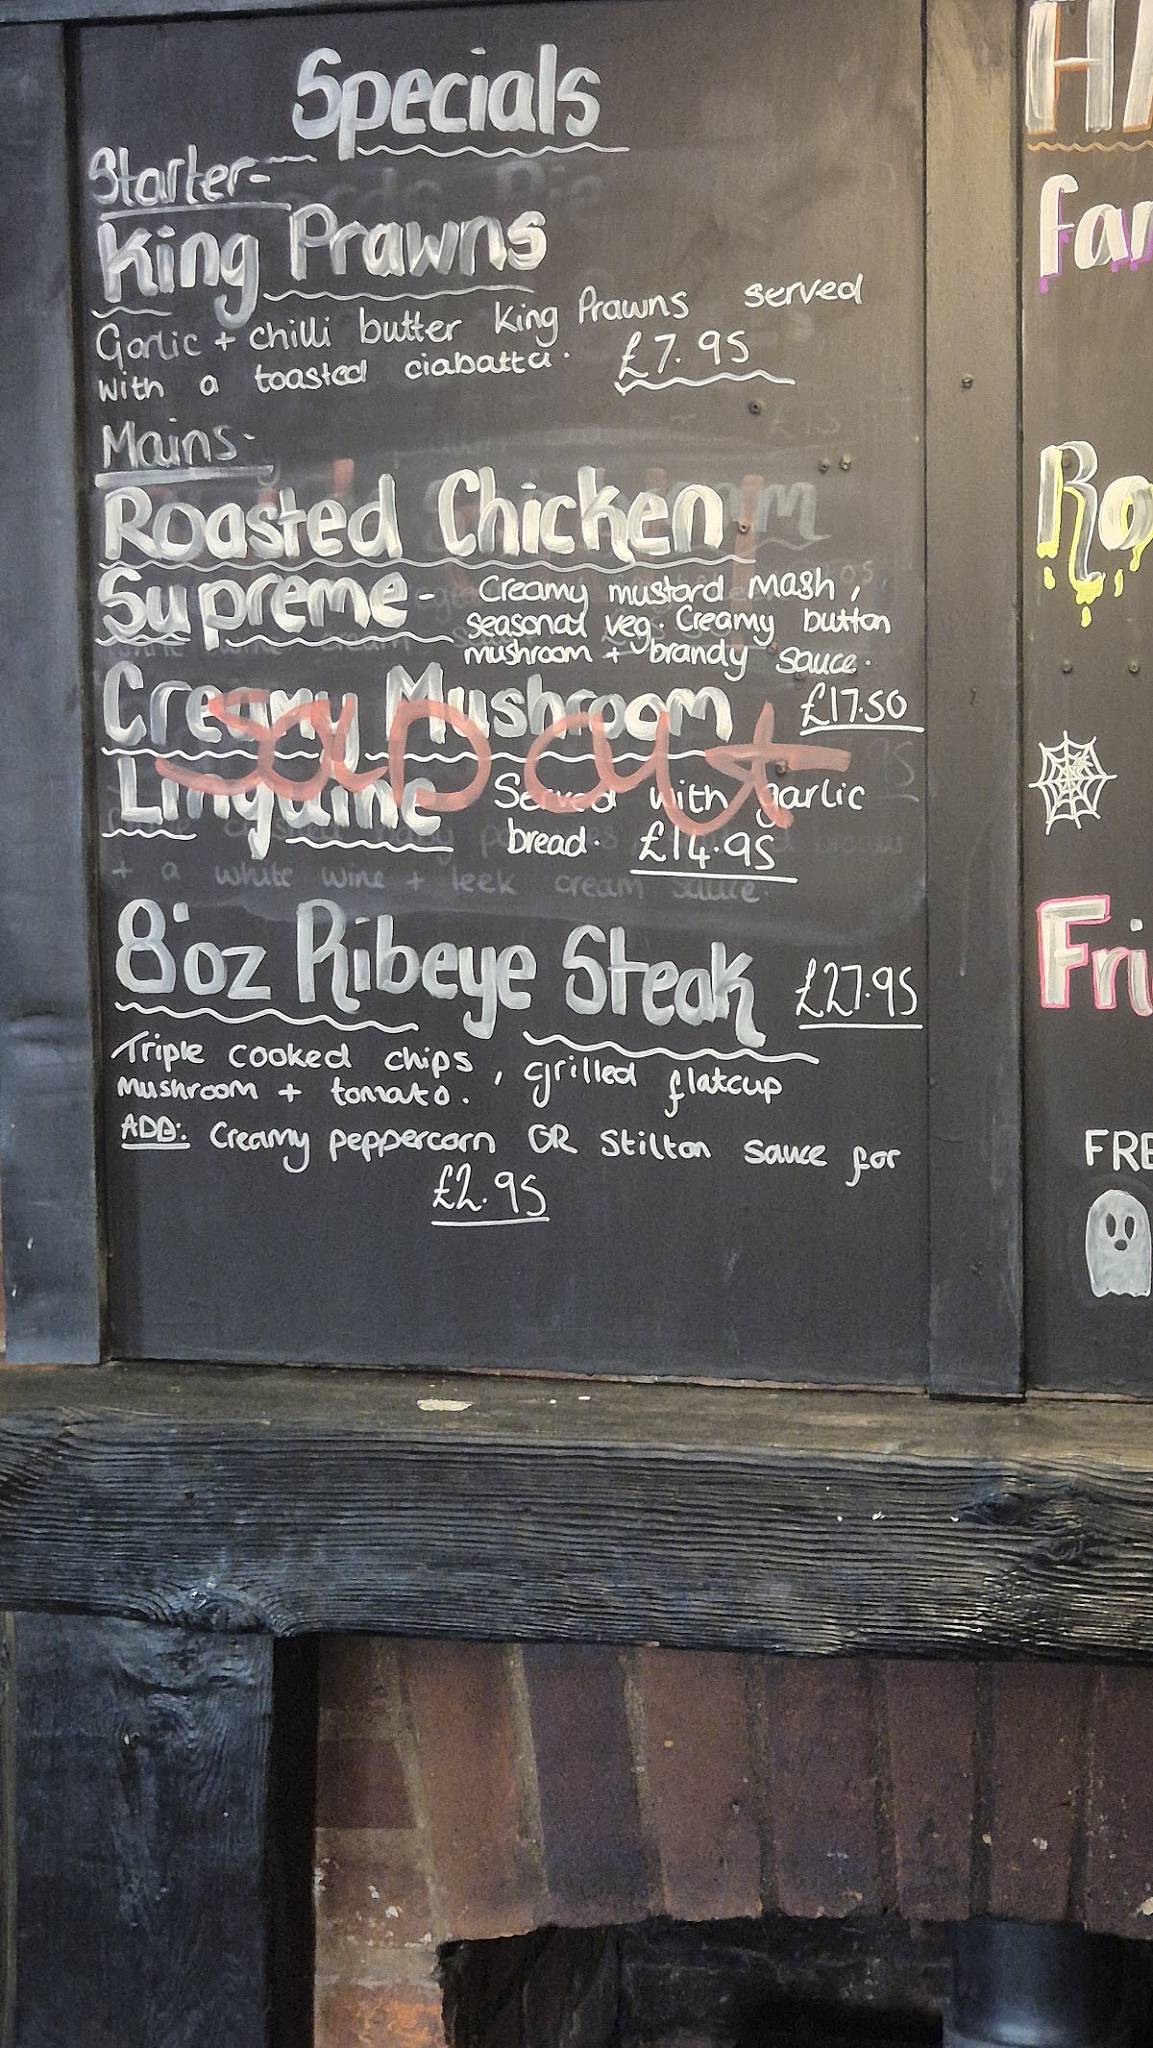 Specials
Starter-
King Prawns
Garlic + chilli butter King Prawns served
with a toasted ciabatta. £7.95
Mains-
Roasted Chicken
Supreme- Creamy mustard mash,
seasonal veg. Creamy button
mushroom + brandy sauce.
£17.50
Creamy Mushroom
SOLD out
Linguine Served with garlic
bread. £14.95
+ a white wine + leek cream sauce.
8oz Ribeye Steak £27.95
Triple cooked chips, grilled flatcup
mushroom + tomato.
ADD: Creamy peppercorn OR Stilton sauce for
£2.95
HA
fan
Ro
Fri
FRE